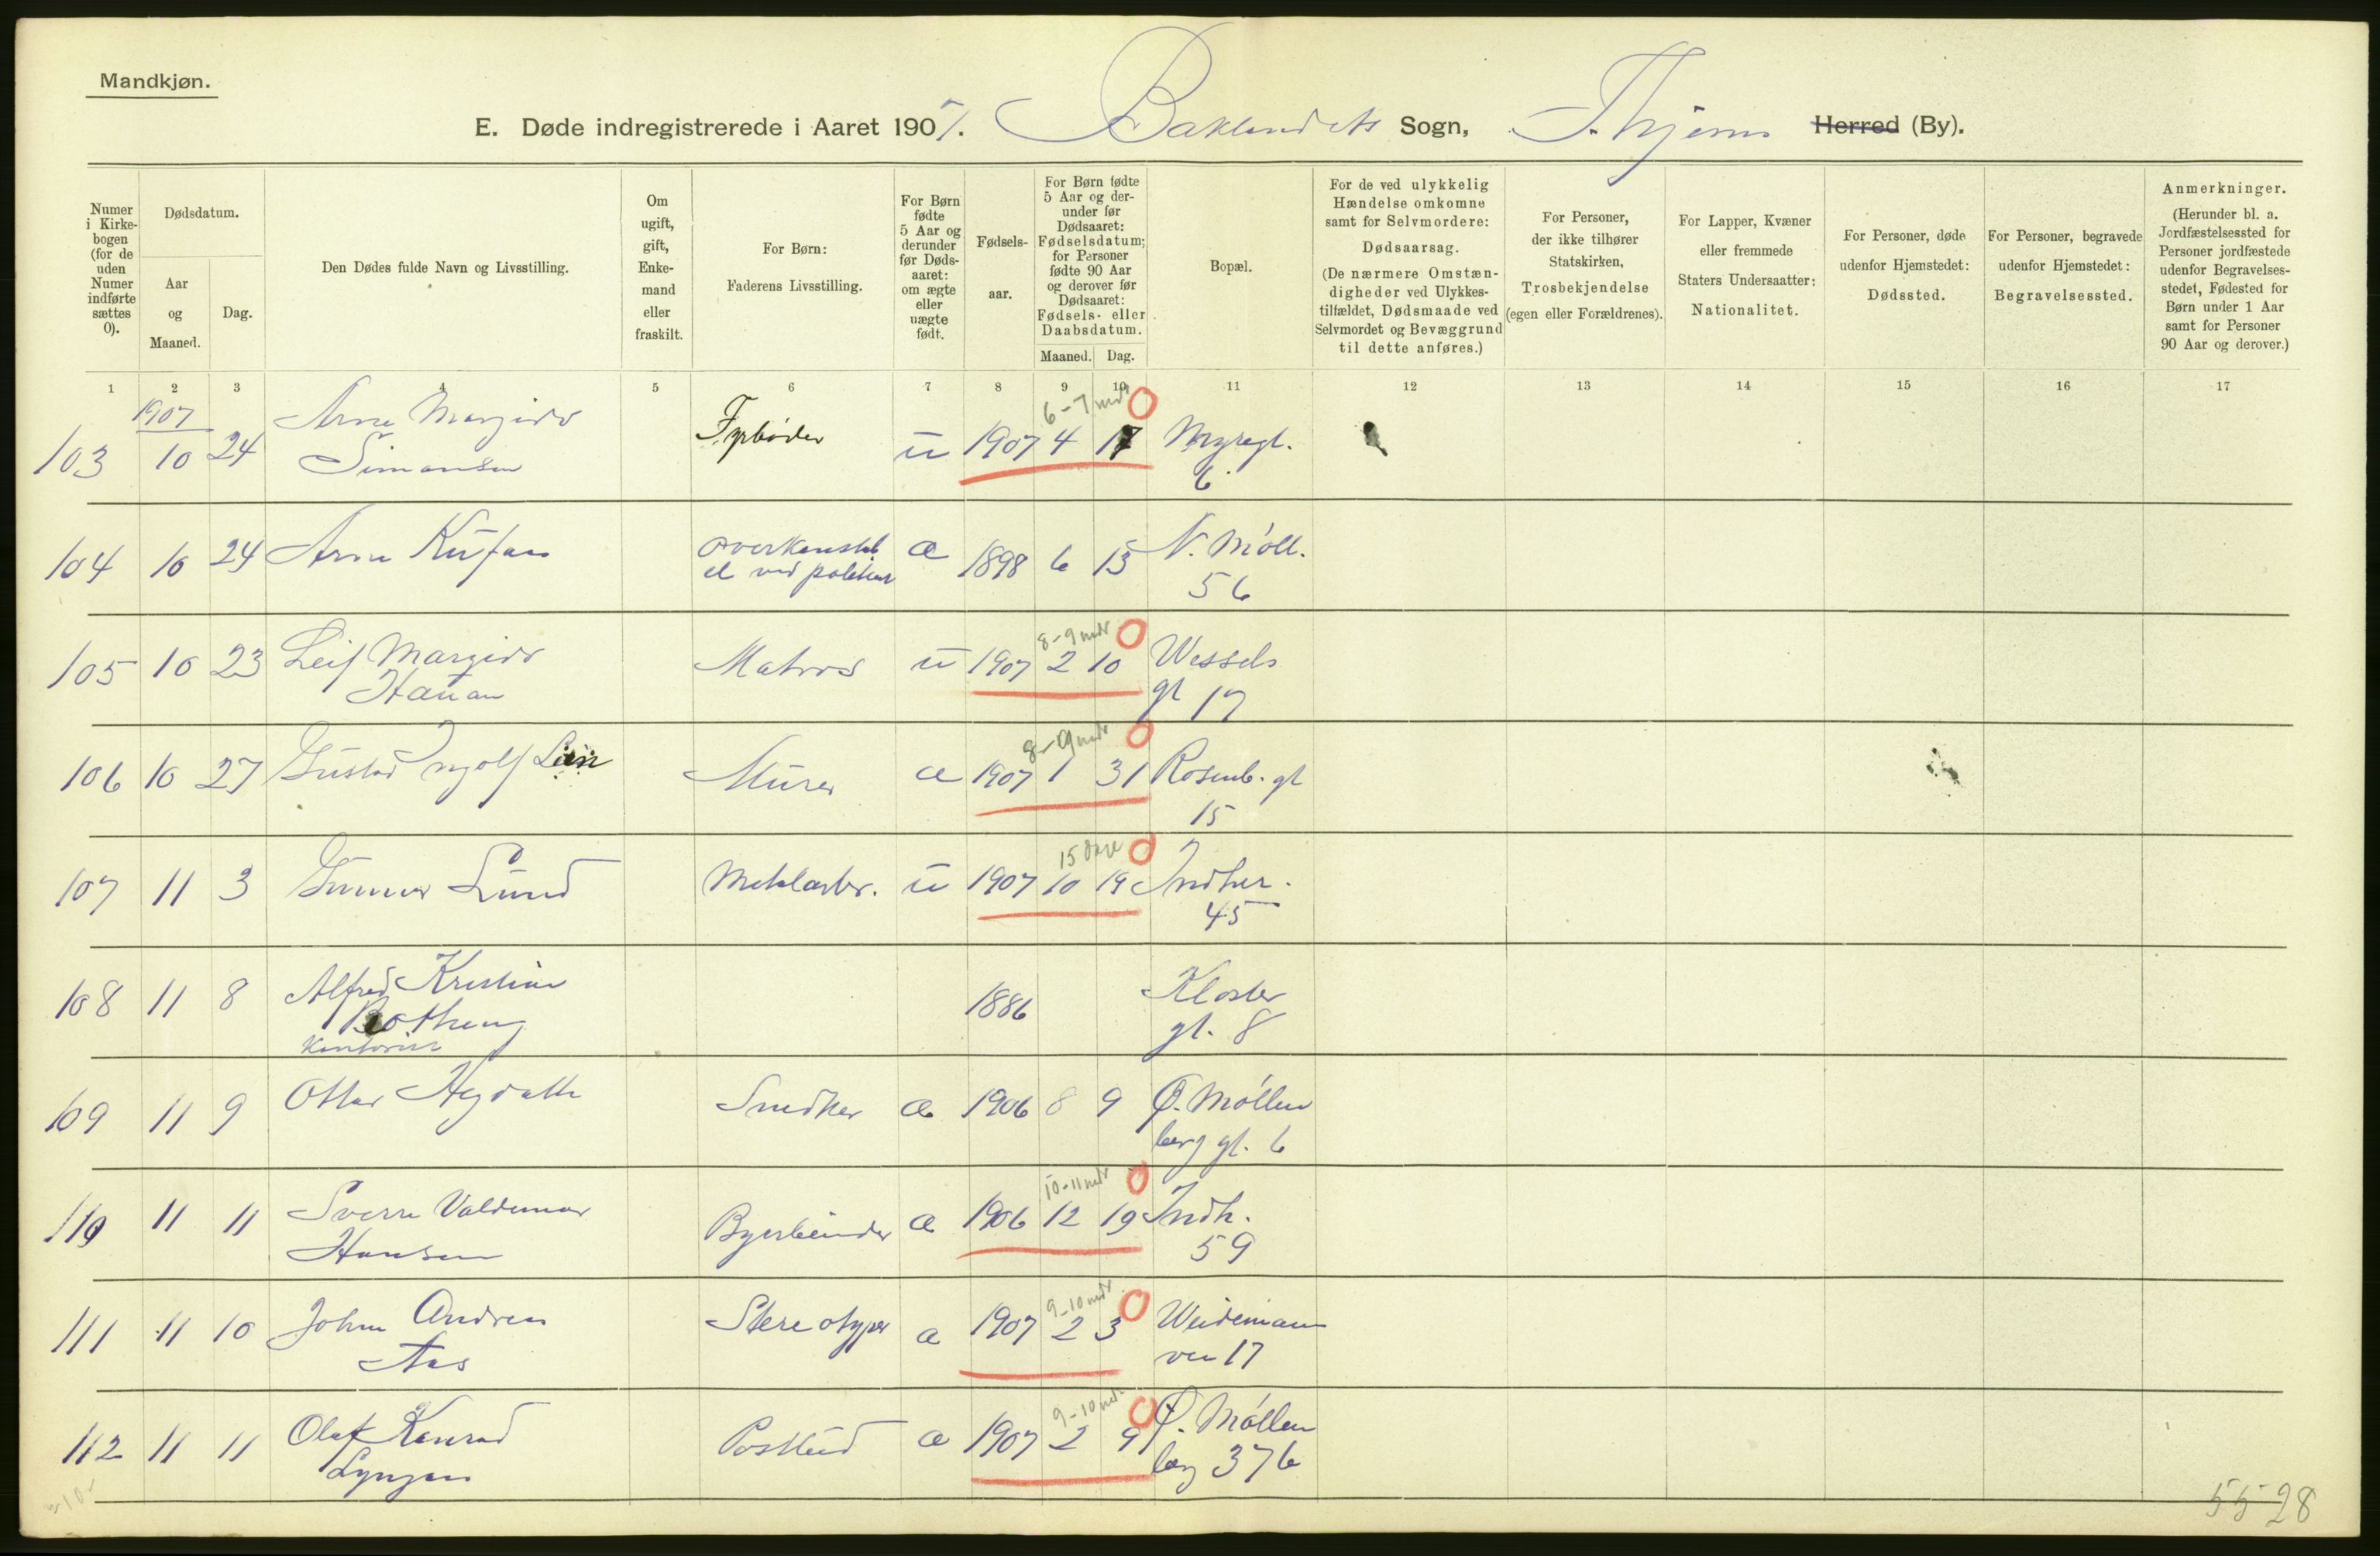 Mandkjøn.
E. Døde indregistrerede i Aaret 1907. Baklandets Sogn, T.hjems Herred (By).
Numer i Kirkebogen (for de uden Numer indførte sættes 0).
Dødsdatum.
Aar og Maaned.
Dag.
Den Dødes fulde Navn og Livsstilling.
Om ugift, gift, Enkemand eller fraskilt.
For Børn: Faderens Livsstilling.
For Børn fødte 5 Aar og derunder før Dødsaaret: om ægte eller uægte født.
Fødselsaar.
For Børn fødte 5 Aar og derunder før Dødsaaret: Fødselsdatum; for Personer fødte 90 Aar og derover før Dødsaaret: Fødsels- eller Daabsdatum.
Maaned. Dag.
Bopæl.
For de ved ulykkelig Hændelse omkomne samt for Selvmordere: Dødsaarsag. (De nærmere Omstændigheder ved Ulykkestilfældet, Dødsmaade ved Selvmordet og Bevæggrund til dette anføres.)
For Personer, der ikke tilhører Statskirken, Trosbekjendelse (egen eller Forældrenes).
For Lapper, Kvæner eller fremmede Staters Undersaatter: Nationalitet.
For Personer, døde udenfor Hjemstedet: Dødssted.
For Personer, begravede udenfor Hjemstedet: Begravelsessted.
Anmerkninger. (Herunder bl. a. Jordfæstelsessted for Personer jordfæstede udenfor Begravelsesstedet, Fødested for Børn under 1 Aar samt for Personer 90 Aar og derover.)
1 2 3 4 5 6 7 8 9 10 11 12 13 14 15 16 17
1907
6-7 mdr
103 10 24 Arne Margido Simonsen Fyrbøder u 1907 4 17 Myragt. 6
104 10 24 Arne overkonstab el ved politiet æ 1898 6 13 N. Møll. 56
8-9 mdr
105 10 23 Leif Margido Hauan Matros u 1907 2 10 Wessels gt 17
8-9 mdr
106 10 27 Gustav Ingolf Lien Murer æ 1907 1 31 Rosenb. gt 15
15 dage
107 11 3 Gunnar Lund u 1907 10 19 Indher. 45
108 11 8 Alfred Kristian Kontorist 1886 Kloster gt. 8
109 11 9 Ottar Snedker æ 1906 8 9 Ø. Møllenberg gt. 6
10-11 mdr
110 11 11 Sverre Valdemar Hansen æ 1906 12 19 Indh. 59
9-10 mdr.
111 11 10 John Andreas Aas Stereotyper æ 1907 2 3 Weideman vei 17
9-10 mdr
112 11 11 Olaf Konrad Lyngen Postbud æ 1907 2 9 Ø. Møllen berg 37b
55 28